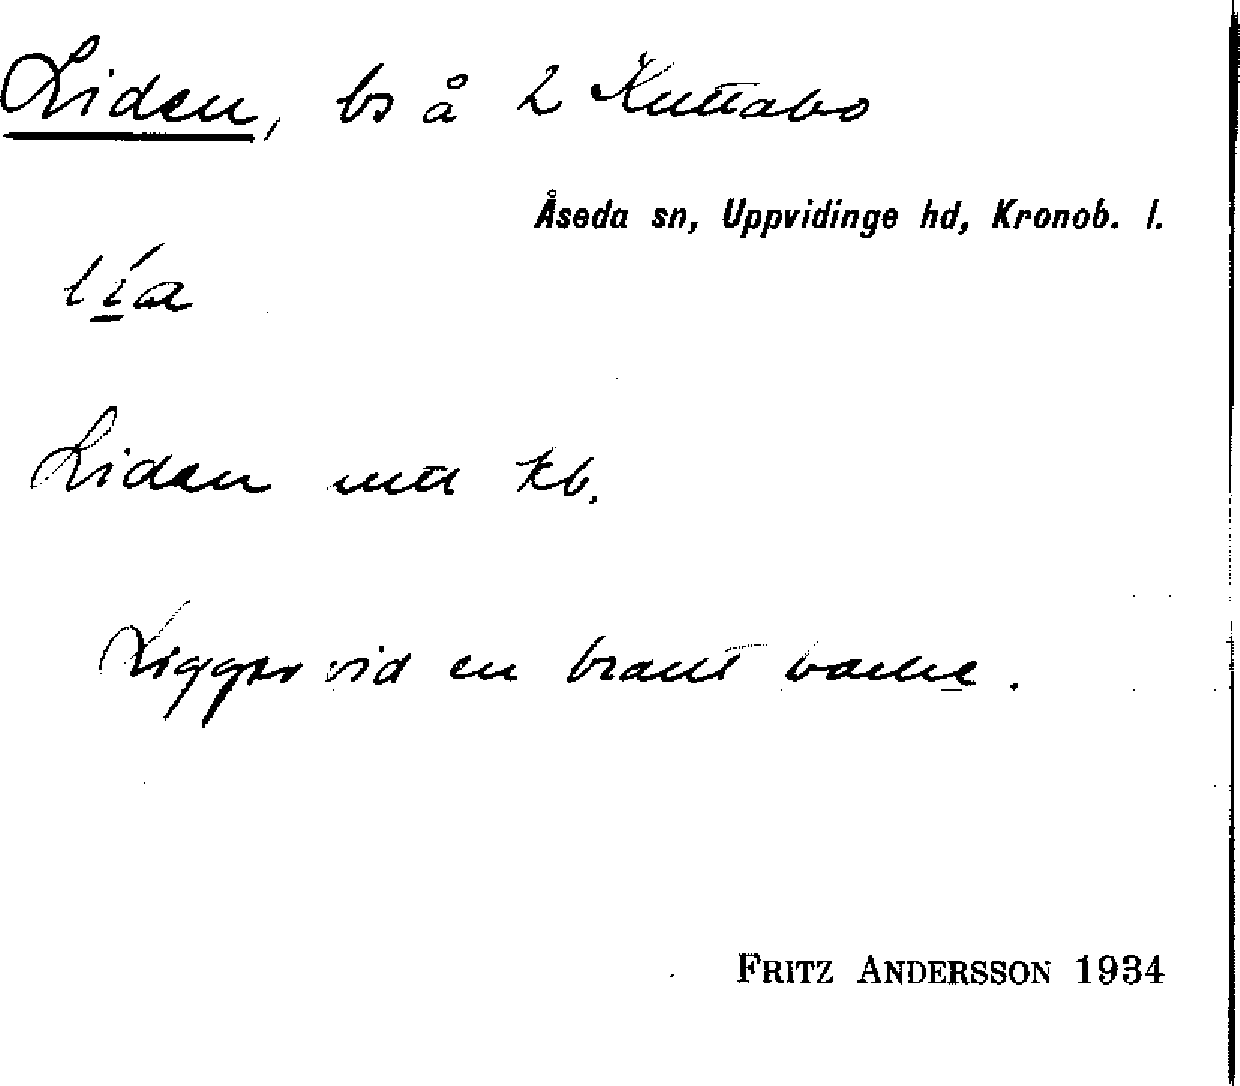 Liden, bs å 2 Kuttabo
Åseda sn, Uppvidinge hd, Kronob. l.
lia
Liden utt kb.
Ligger vid en brant backe.
FRITZ ANDERSSON 1934